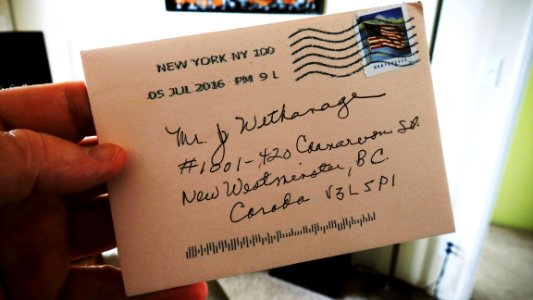 NEW YORK NY 100
05 JUL 2016 PM 9 L
Mr. J. Wethanage
#1001-420 Carnarvon St.
New Westminster, BC.
Canada V3L5P1